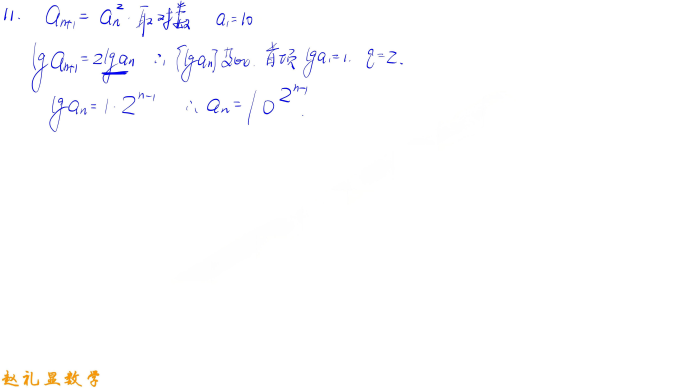 11. aₙ₊₁ = aₙ². 取对数 a₁=10
lg aₙ₊₁ = 2lg aₙ ∴ {lg aₙ} 首项 lg a₁=1. q=2.
lg aₙ = 1·2ⁿ⁻¹ ∴ aₙ = 10^{2^{n-1}}.
赵礼显数学